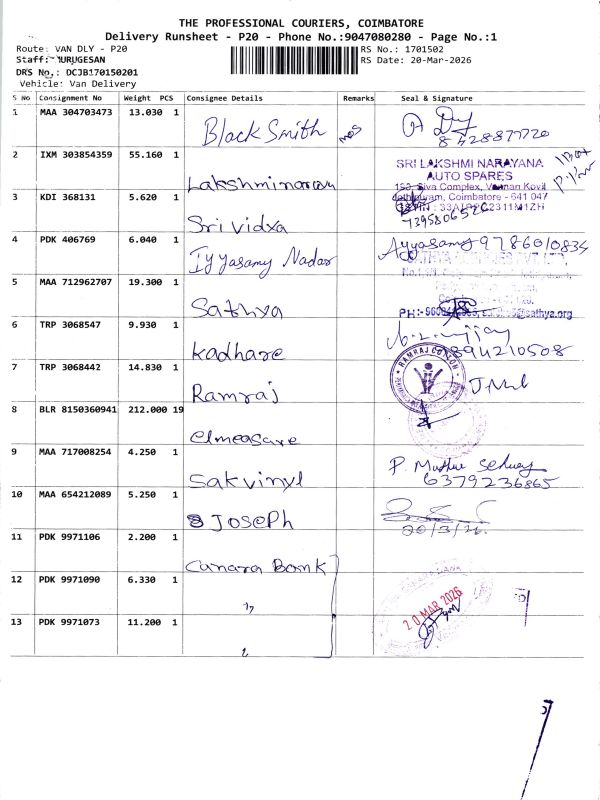 THE PROFESSIONAL COURIERS, COIMBATORE
Delivery Runsheet - P20 - Phone No.:9047080280 - Page No.:1
Route: VAN DLY - P20
RS No.: 1701502
Staff: MURUGESAN
RS Date: 20-Mar-2026
DRS No.: DCJB170150201
Vehicle: Van Delivery
S No Consignment No Weight PCS Consignee Details Remarks Seal & Signature
1 MAA 304703473 13.030 1 Black Smith
2 IXM 303854359 55.160 1 Lakshminarayan
SRI LAKSHMI NARAYANA
AUTO SPARES
Siva Complex, Kovil
Coimbatore - 641 047
3 KDI 368131 5.620 1 Sri vidya
4 PDK 406769 6.040 1 Iyyasamy Nadar Ayyasamy 9786010834
5 MAA 712962707 19.300 1 Sathya
PH:- @sathya.org
6 TRP 3068547 9.930 1 Kadhare 894210508
7 TRP 3068442 14.830 1 Ramraj
RAMRAJ COTTON
8 BLR 8150360941 212.000 19 elmeasare
9 MAA 717008254 4.250 1 Sakvinyl P. Muthu 6379236865
10 MAA 654212089 5.250 1 Joseph 20/3/26
11 PDK 9971106 2.200 1 Canara Bank
12 PDK 9971090 6.330 1 "
20 MAR 2026
13 PDK 9971073 11.200 1 "